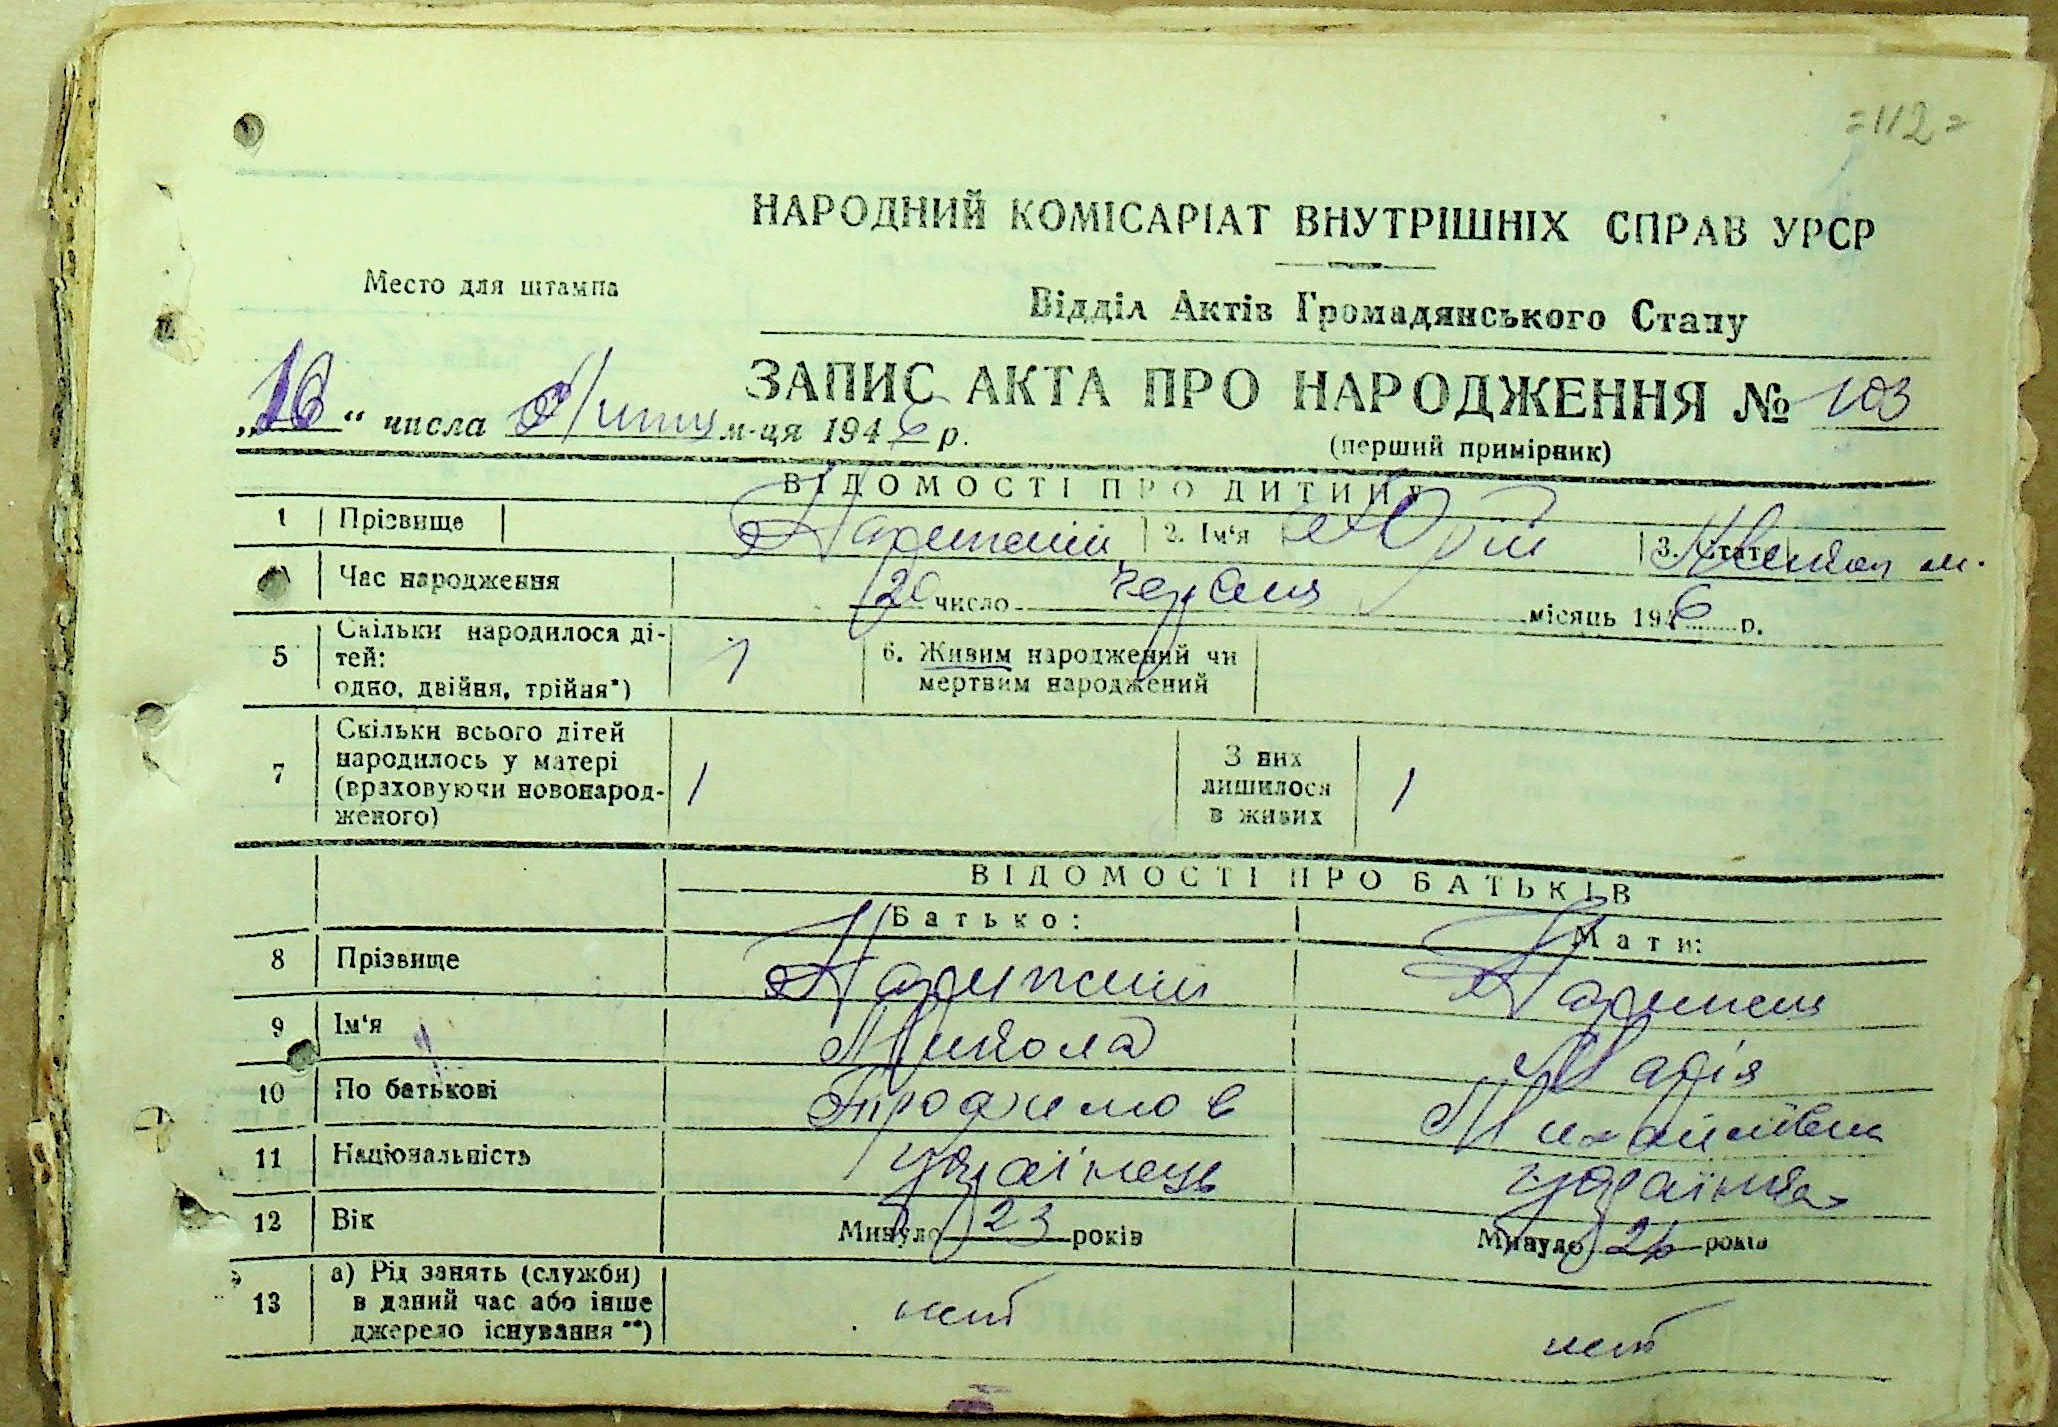 =112=
НАРОДНИЙ КОМІСАРІАТ ВНУТРІШНІХ СПРАВ УРСР
Место для штампа
Відділ Актів Громадянського Стану
ЗАПИС АКТА ПРО НАРОДЖЕННЯ № 103
„16“ числа Липця м-ця 1946 р.
(перший примірник)
ВІДОМОСТІ ПРО ДИТИНУ
1 Прізвище 2. Ім'я Юрій 3. Стать м.
Час народження 20 число червня місяць 1946 р.
5 Скільки народилося ді-
тей:
одно, двійня, трійня*) 1
6. Живим народжений чи
мертвим народжений
7 Скільки всього дітей
народилось у матері
(враховуючи новонарод-
женого) 1
З них
лишилося
в живих 1
ВІДОМОСТІ ПРО БАТЬКІВ
Батько: Мати:
8 Прізвище
9 Ім'я Микола Марія
10 По батькові Трофимов Михайлівна
11 Національність українець українка
12 Вік Минуло 23 років Минуло років
13 а) Рід занять (служби)
в даний час або інше
джерело існування **) нет нет